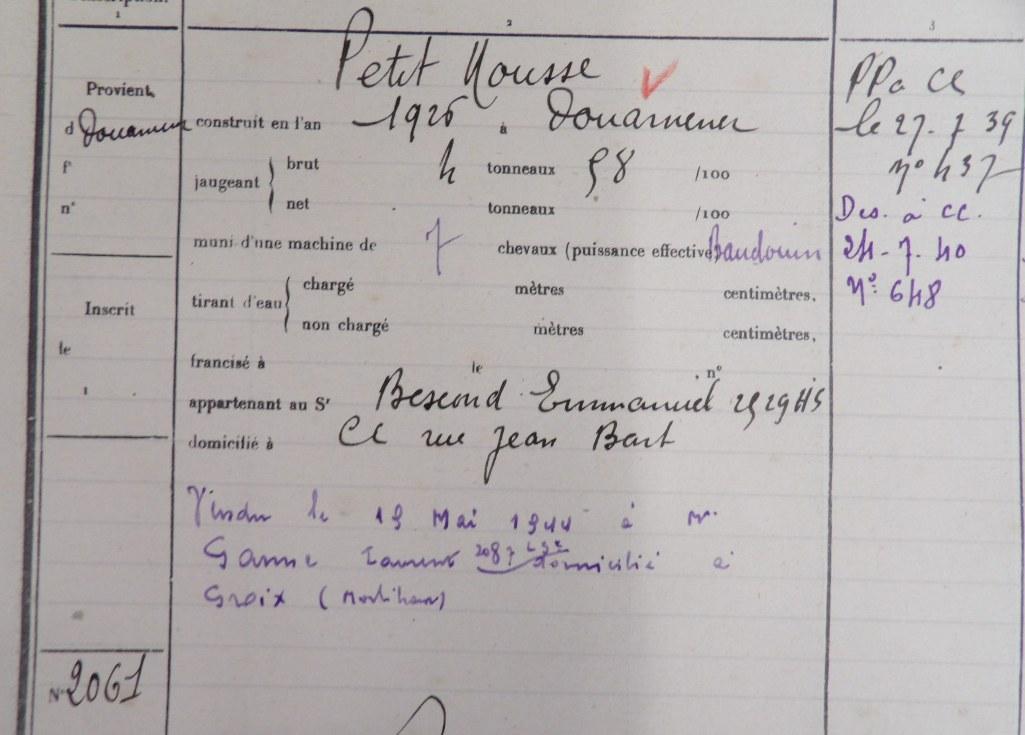 1
2
3
Petit Mousse
Provient
d Douarnenez
construit en l'an 1926 à Douarnenez
fº
jaugeant { brut 4 tonneaux 58 /100
nº
net tonneaux /100
muni d'une machine de 7 chevaux (puissance effective Baudouin
tirant d'eau { chargé mètres centimètres,
non chargé mètres centimètres,
Inscrit
le
francisé à le , nº
appartenant au Sr Bescond Emmanuel
domicilié à CC rue Jean Bart
Vendu le 19 Mai 1944 à Mr
Laurent 2087 domicilié à
Groix (Morbihan)
Nº 2061
PPa CC
le 27-7 39
nº 437
Des. à CC.
24-7-40
Nº: 648